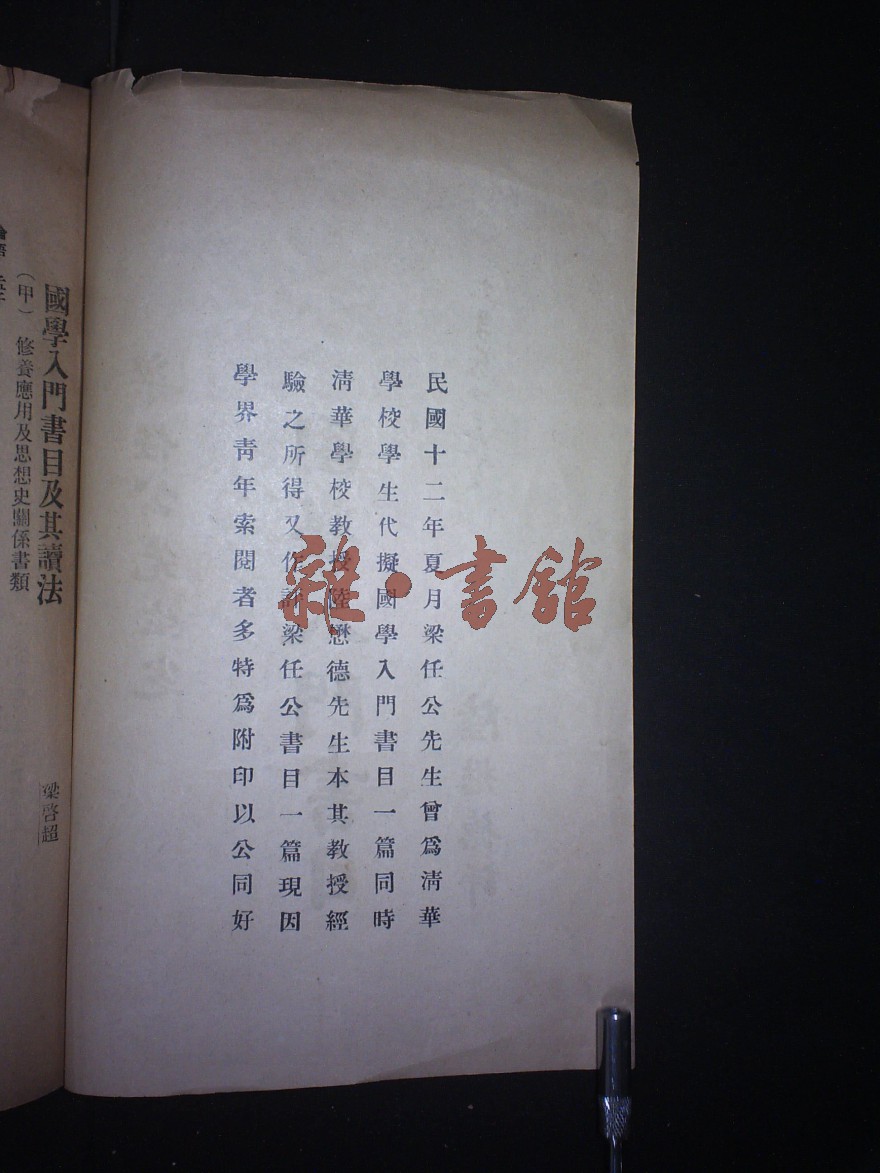 民國十二年夏月梁任公先生曾爲淸華
學校學生代擬國學入門書目一篇同時
淸華學校教授陸懋德先生本其教授經
驗之所得又作評梁任公書目一篇現因
學界靑年索閱者多特爲附印以公同好
國學入門書目及其讀法
梁啓超
（甲） 修養應用及思想史關係書類
雜·書館